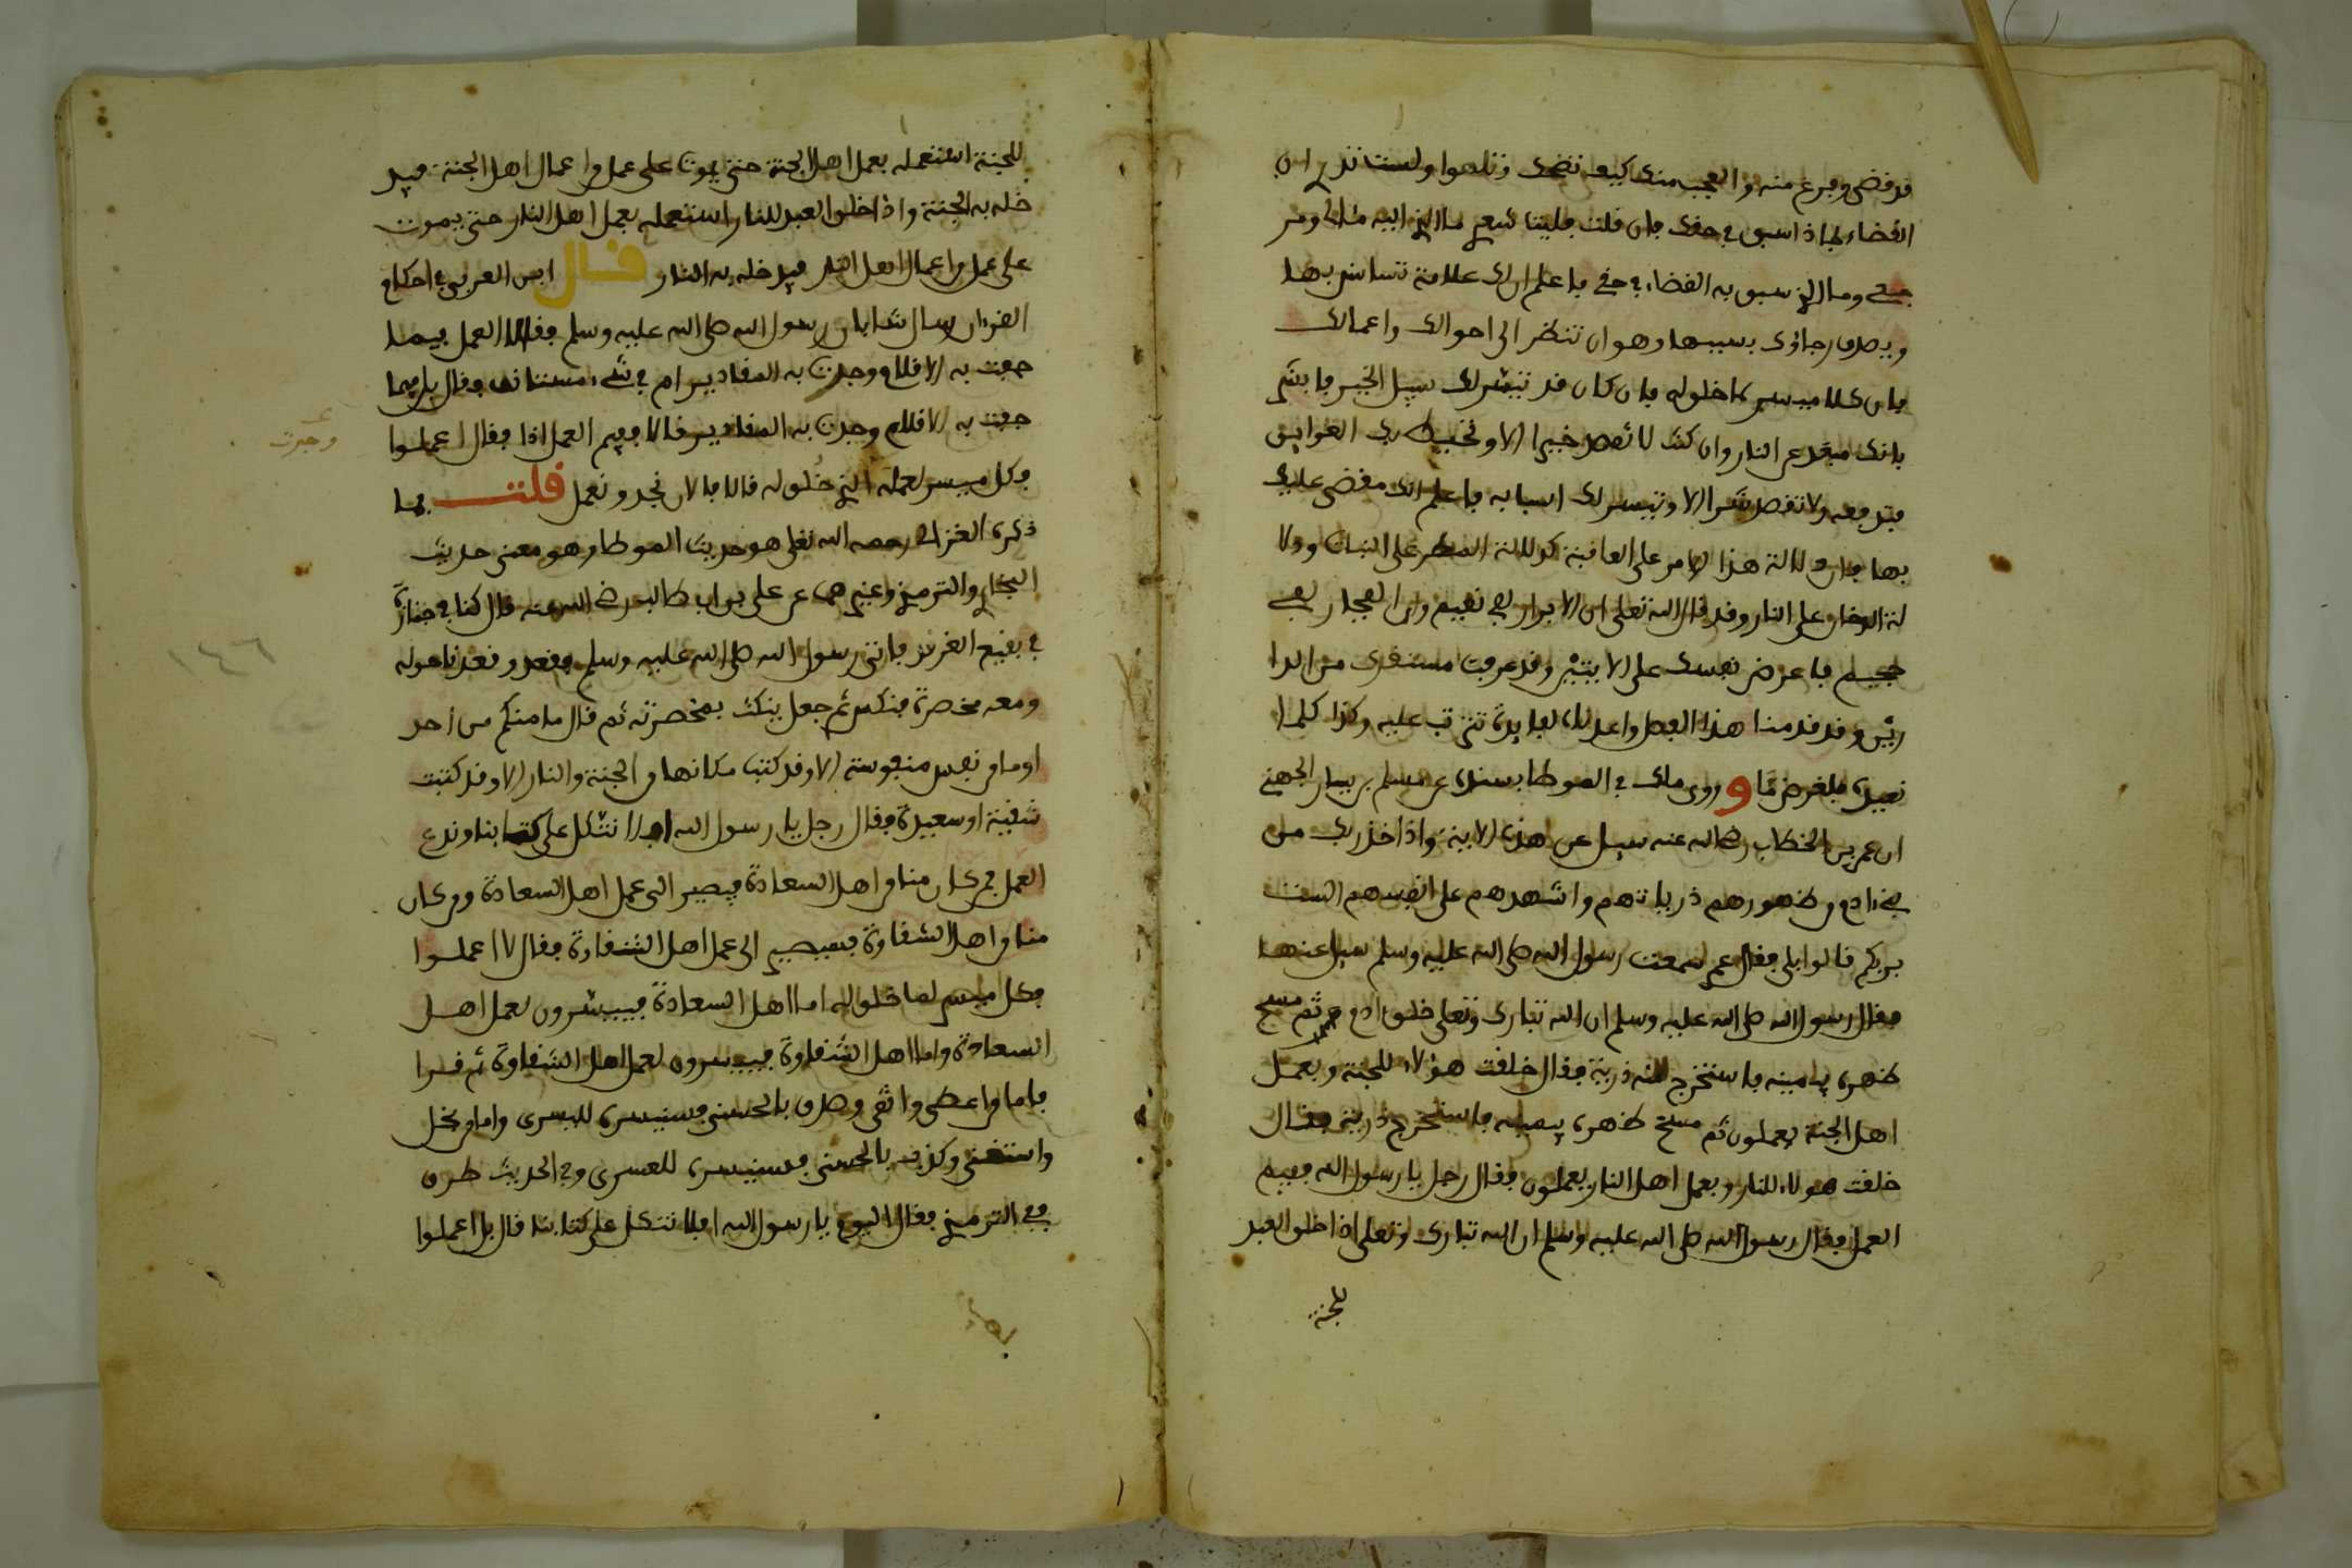 قد قضي وفرغ منه والعجب منك كيف تضحك وتلهوا ولست تدري ان
القضاء بماذا سبق في حقك فان قلت فليت شعري ما الذي اليه مئالي ومر
جعي وما الذي سبق به القضاء في حقي فاعلم ان لك علامة تستانس بها
ويصدق رجاؤك بسببها وهو ان تنظر الى احوالك واعمالك
فان كلا ميسر لما خلق له فان كان قد تيسر لك سبيل الخير فابشر
بانك مبعد عن النار وان كنت لا تقصد خيرا الا وتحيط بك العوايق
فتدفعه ولا تقصد شرا الا وتيسر لك اسبابه فاعلم انك مقضي عليك
بها فان دلالة هذا الامر على العاقبة كدلالة المطر على النبات ودلا
لة الدخان على النار وقد قال الله تعلى ان الابرار لفي نعيم وان الفجار لفي
جحيم فاعرض نفسك على الايتين وقد عرفت مستقرك من الدا
رين وقد قدمنا هذا الفصل واعدناه لفايدة تترتب عليه وكذا كلما
نعيده فلغرض ما و روى ملك في الموطا بسنده عن مسلم بن يسار الجهني
ان عمر بن الخطاب رضي الله عنه سيل عن هذه الاية واذ اخذ ربك من
بني ءادم من ظهورهم ذرياتهم واشهدهم على انفسهم الست
بربكم قالوا بلى فقال عمر سمعت رسول الله صلى الله عليه وسلم سيل عنها
فقال رسول الله صلى الله عليه وسلم ان الله تبارك وتعلى خلق ادم ثم مسح
ظهره بيمينه فاستخرج منه ذرية فقال خلقت هؤلاء للجنة وبعمل
اهل الجنة يعملون ثم مسح ظهره بيمينه فاستخرج ذرية فقال
خلقت هولاء للنار وبعمل اهل النار يعملون فقال رجل يا رسول الله ففيم
العمل فقال رسول الله صلى الله عليه وسلم ان الله تبارك وتعلى اذا خلق العبد
للجنة
للجنة استعمله بعمل اهل الجنة حتى يموت على عمل من اعمال اهل الجنة فيد
خله به الجنة واذا خلق العبد للنار استعمله بعمل اهل النار حتى يموت
على عمل من اعمال اهل النار فيدخله به النار قال ابن العربي في احكام
القرءان سال شابان رسول الله صلى الله عليه وسلم فقالا العمل فيما
جفت به الاقلام ووجدت به المقادير ام في شيء مستانف فقال بل فيما
جفت به الاقلام وجرت به المقادير قالا ففيم العمل اذا فقال اعملوا
وجرت
فكل ميسر لعمله الذي خلق له قالا فالان نجد ونعمل قلت فما
ذكره الغزالي رحمه الله تعلى هو حديث الموطا وهو معنى حديث
البخاري والترمذي وغيرهما عن علي بن ابي طالب رضي الله عنه قال كنا في جنازة
في بقيع الغرقد فاتى رسول الله صلى الله عليه وسلم فقعد وقعدنا حوله
١٤٦
ومعه مخصرة فنكس ثم جعل ينكت بمخصرته ثم قال ما منكم من احد
او ما من نفس منفوسة الا وقد كتب مكانها من الجنة والنار الا وقد كتبت
شقية او سعيدة فقال رجل يا رسول الله افلا نتكل على كتابنا وندع
العمل فمن كان منا من اهل السعادة فيصير الى عمل اهل السعادة ومن كان
منا من اهل الشقاوة فسيصير الى عمل اهل الشقاوة فقال لا اعملوا
فكل ميسر لما خلق له اما اهل السعادة فييسرون لعمل اهل
السعادة واما اهل الشقاوة فييسرون لعمل اهل الشقاوة ثم قرا
فاما من اعطى واتقى وصدق بالحسنى فسنيسره لليسرى واما من بخل
واستغنى وكذب بالحسنى فسنيسره للعسرى وفي الحديث طرق
ففي الترمذي فقال القوم يا رسول الله افلا نتكل على كتابنا قال بل اعملوا